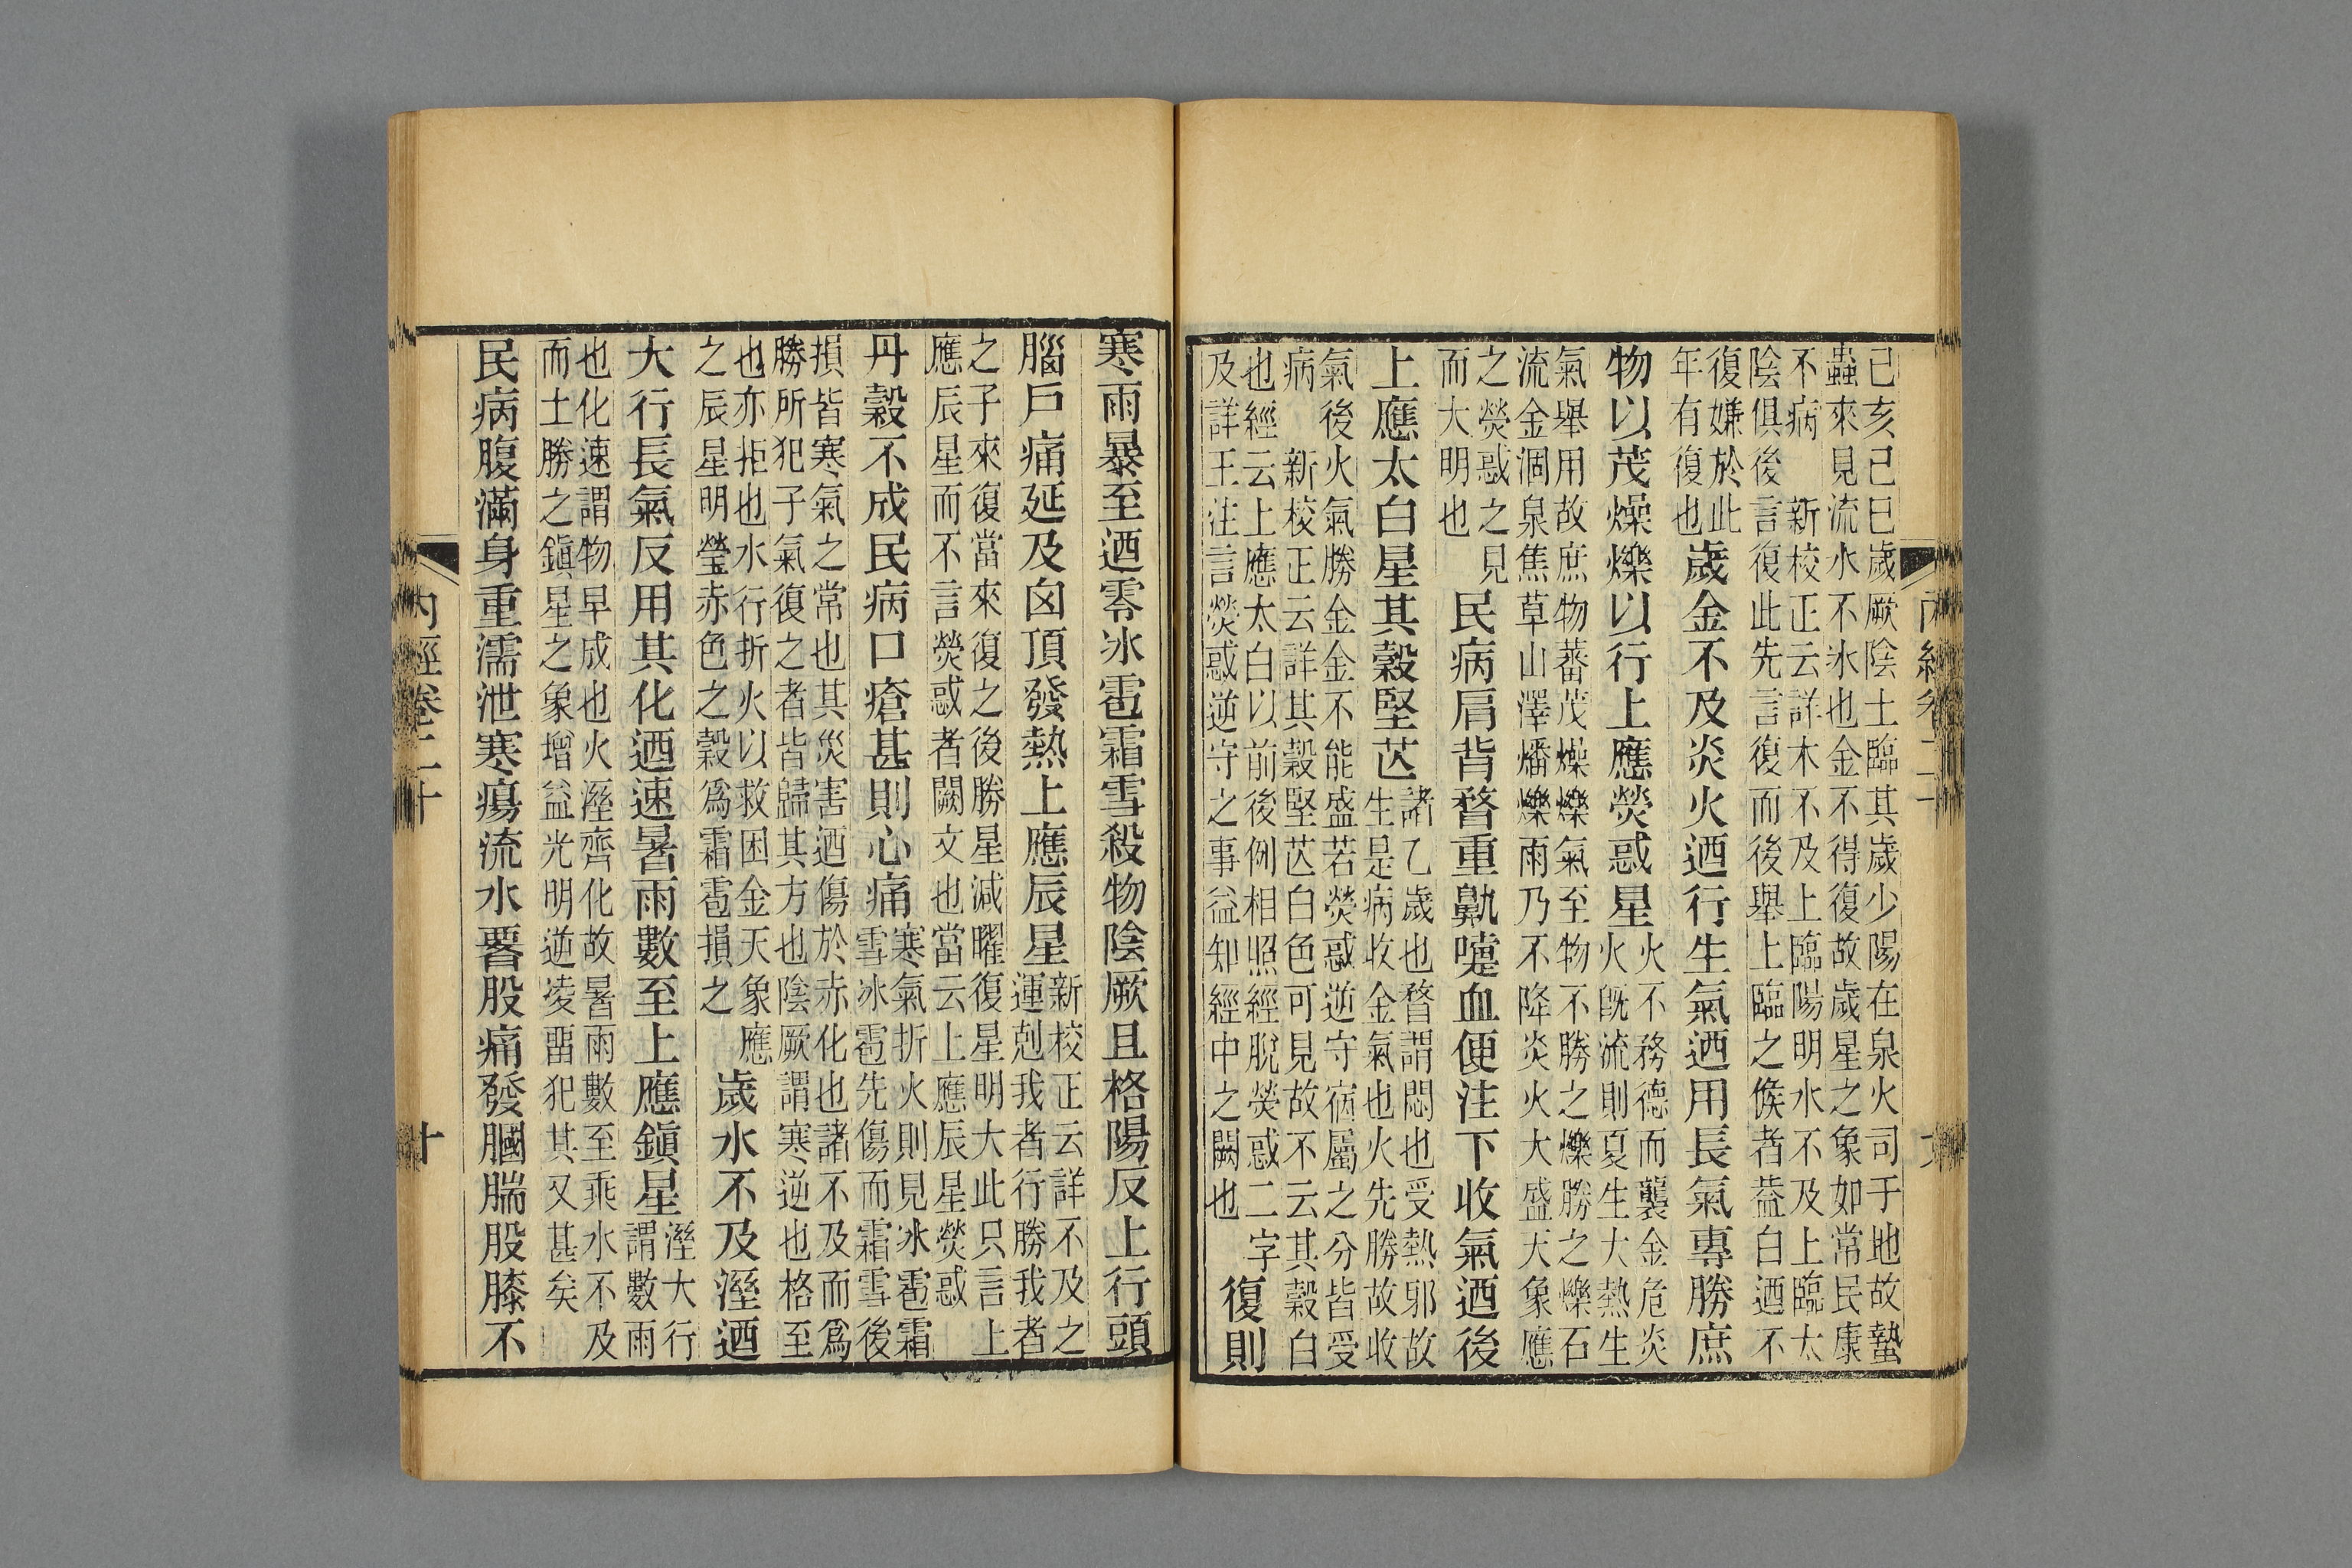 己亥己巳歲厥陰土臨其歲少陽在泉火司于地故蟄
蟲來見流水不氷也金不得復故歲星之象如常民康
不病 新校正云詳木不及上臨陽明水不及上臨太
陰俱後言復此先言復而後舉上臨之候者葢白迺不
復嫌於此
年有復也
歲金不及炎火迺行生氣迺用長氣專勝庶
物以茂燥爍以行上應熒惑星
火不務德而襲金危炎
火旣流則夏生大熱生
氣舉用故庶物蕃茂燥爍氣至物不勝之爍勝之爍石
流金涸泉焦草山澤燔爍雨乃不降炎火大盛天象應
之熒惑之見
而大明也
民病肩背瞀重鼽嚏血便注下收氣迺後
上應太白星其穀堅芒
諸乙歲也瞀謂悶也受熱邪故
生是病收金氣也火先勝故收
氣後火氣勝金金不能盛若熒惑逆守宿屬之分皆受
病 新校正云詳其穀堅芒白色可見故不云其穀白
也經云上應太白以前後例相照經脫熒惑二字
及詳王注言熒惑逆守之事益知經中之闕也
復則
寒雨暴至迺零冰雹霜雪殺物陰厥且格陽反上行頭
腦戶痛延及囟頂發熱上應辰星
新校正云詳不及之
運剋我者行勝我者
之子來復當來復之後勝星減曜復星明大此只言上
應辰星而不言熒惑者闕文也當云上應辰星熒惑
丹穀不成民病口瘡甚則心痛
寒氣折火則見冰雹霜
雪冰雹先傷而霜雪後
損皆寒氣之常也其災害迺傷於赤化也諸不及而爲
勝所犯子氣復之者皆歸其方也陰厥謂寒逆也格至
也亦拒也水行折火以救困金天象應
之辰星明瑩赤色之穀爲霜雹損之
歲水不及溼迺
大行長氣反用其化迺速暑雨數至上應鎮星
溼大行
謂數雨
也化速謂物早成也火溼齊化故暑雨數至乘水不及
而土勝之鎮星之象增益光明逆凌畱犯其又甚矣
民病腹滿身重濡泄寒瘍流水腰股痛發膕腨股膝不
內經卷二十
十